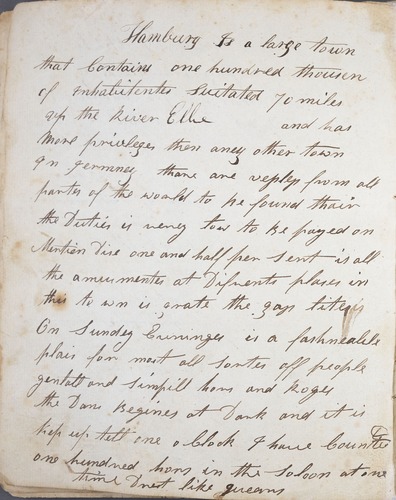 Hamburg Is a large town
that Contains one hundred thousen
of inhabitentes Suitated 70 miles
up the River Elbe and has
More privleges then aney other town
in germney thare are repley from all
partes of the world to be found thair
the Duties is verey low to be payed on
Merchen Dise one and half per Sent is all
the amusmentes at Difrents plases in
this to wn is grate the gap
On Sunday Evninges is a fashneable
plais for most all sortes off people
gentall and Simpill hors and Roges
the Dans Begines at Dark and it is
kep up tell one o Clock I have Counted
one hundred hors in the Saloon at one
time Drest like queens